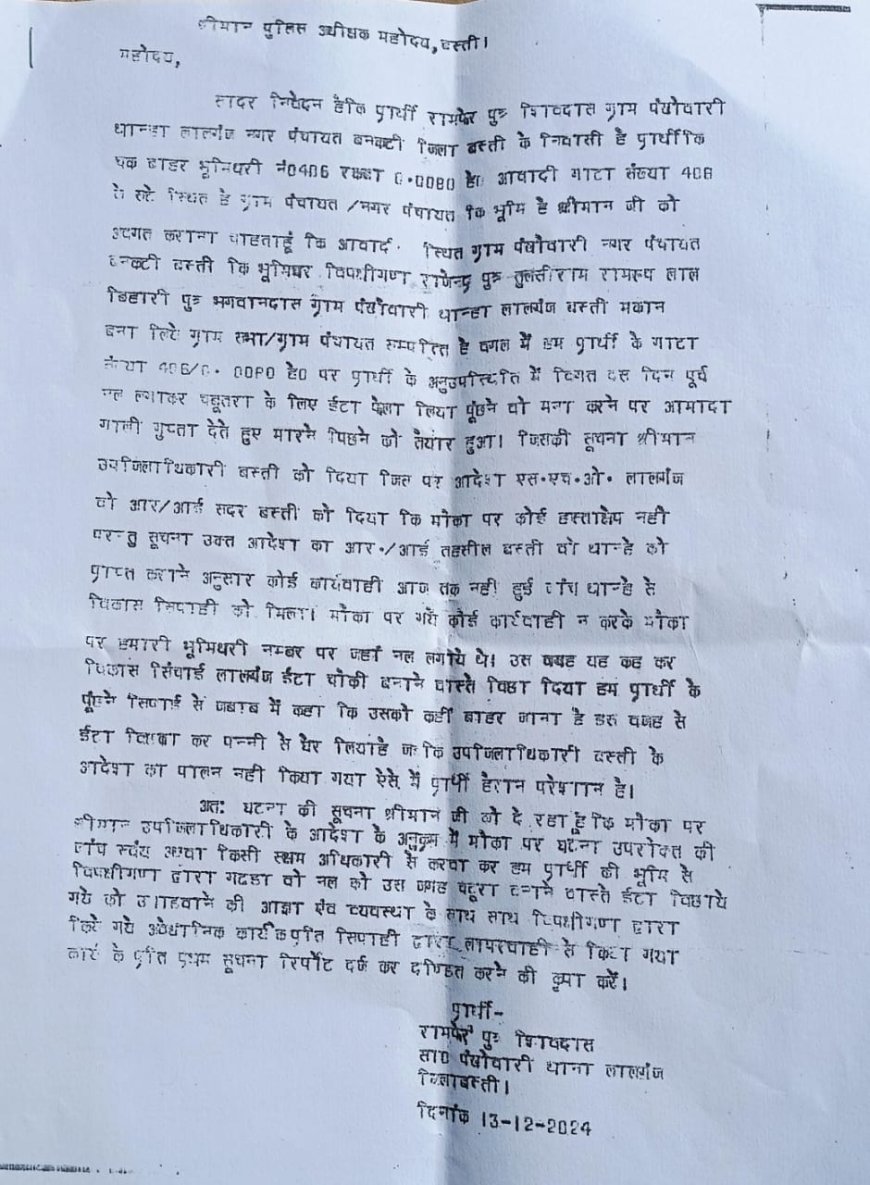 श्रीमान पुलिस अधीक्षक महोदय, बस्ती।
महोदय,
सादर निवेदन हैकि प्रार्थी रामफेर पुत्र शिवदास ग्राम पंखोवारी
थान्हा लालगंज नगर पंचायत बनकटी जिला बस्ती के निवासी है प्रार्थी कि
एक बाडर भूमिधरी नं0406 रकबा 0.0080 हे0 आवादी गाटा संख्या 406
से सटे स्थित है ग्राम पंचायत /नगर पंचायत कि भूमि है श्रीमान जी को
अवगत कराना चाहताहूं कि आवादी स्थित ग्राम पंखोवारी नगर पंचायत
बनकटी बस्ती कि भूमिपर विपक्षीगण राजेन्द्र पुत्र तुलसीराम रामरूप लाल
बिहारी पुत्र भगवानदास ग्राम पंखोवारी थान्हा लालगंज बस्ती मकान
बना लिये ग्राम सभा/ग्राम पंचायत सम्पत्ति है बगल में हम प्रार्थी के गाटा
संख्या 406/0.0080 हे0 पर प्रार्थी के अनुउपस्थिति में विगत दस दिन पूर्व
नल लगाकर चबूतरा के लिए ईटा फैला लिया पूंछने वो मना करने पर आमादा
गाली गुप्ता देते हुए मारने पिछने को तैयार हुआ। जिसकी सूचना श्रीमान
उपजिलाधिकारी बस्ती को दिया जिस पर आदेश एस.एच.ओ. लालगंज
वो आर/आई सदर बस्ती को दिया कि मौका पर कोई हस्ताक्षेप नही
परन्तु सूचना उक्त आदेश का आर./आई तहसील बस्ती वो थान्हे को
प्राप्त कराने अनुसार कोई कार्यवाही आज तक नही हुई जांच थान्हे से
विकास सिपाही को मिला। मौका पर गये कोई कार्यवाही न करके मौका
पर हमारी भूमिधरी नम्बर पर जहां नल लगाये थे। उस जगह यह कह कर
विकास सिपाई लालगंज ईटा चौकी बनाने वास्ते विछा दिया हम प्रार्थी के
पूंछने सिपाई से जबाब में कहा कि उसको कहीं बाहर जाना है इस वजह से
ईटा कर पन्नी से घेर लियाहै कि उपजिलाधिकारी बस्ती के
आदेश का पालन नही किया गया ऐसे में प्रार्थी हैरान परेशान है।
अतः घटना की सूचना श्रीमान जी को दे रहा हूं कि मौका पर
श्रीमान उपजिलाधिकारी के आदेश के अनुक्रम में मौका पर घटना उपरोक्त की
जांच स्वंय अथवा किसी सक्षम अधिकारी से करवा कर हम प्रार्थी की भूमि से
विपक्षीगण द्वारा वो नल को उस जगह चबूतरा बनाने वास्ते ईटा विछाये
गये को की आज्ञा एंव व्यवस्था के साथ साथ विपक्षीगण द्वारा
किये गये अवैधानिक सिपाही द्वारा लापरवाही से किया गया
कार्य के प्रति प्रथम सूचना रिर्पोट दर्ज कर दण्डित करने की कृपा करें।
प्रार्थी-
रामफेर पुत्र शिवदास
सा0 पंखोवारी थाना लालगंज
जिलाबस्ती।
दिनांक 13-12-2024